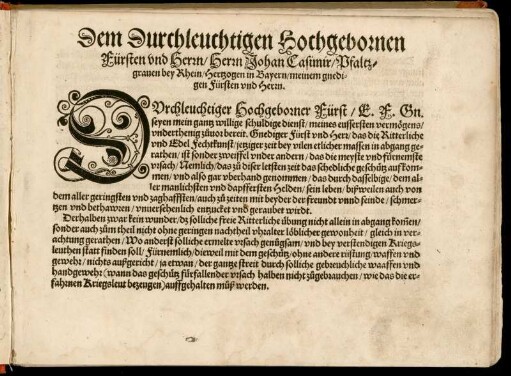 Dem Durchleuchtigen Hochgebornen
Fürsten vnd Herrn/ Herrn Johan Casimir/ Pfaltz-
grauen bey Rhein/ Hertzogen in Bayern/ meinem gnedi-
gen Fürsten vnd Herrn.
DVrchleuchtiger Hochgeborner Fürst/ E. F. Gn.
seyen mein gantz willige schuldige dienst/ meines eussersten vermögens/
vnderthenig zůuor bereit. Gnediger Fürst vnd Herr/ das die Ritterliche
vnd Edel Fechtkunst/ jetziger zeit bey vilen etlicher massen in abgang ge-
rathen/ ist sonder zweiffel vnder andern/ das die meyste vnd fürnemste
vrsach/ Nemlich/ das zů diser letsten zeit das schedliche geschütz auffkom-
men/ vnd also gar vberhand genommen/ das durch dasselbige/ dem al-
ler manlichsten vnd dapffersten Helden/ sein leben/ bißweilen auch von
dem aller geringsten vnd zaghafften/ auch zů zeiten mit beyder der freund vnnd feinde/ schmer-
tzen vnd bethawren/ vnuersehenlich entzucket vnd geraubet wirdt.
Derhalben zwar kein wunder/ dz solliche freie Ritterliche übung nicht allein in abgang kom̃en/
sonder auch zům theil nicht ohne geringen nachtheil vhralter löblicher gewonheit/ gleich in ver-
achtung gerathen/ Wo anderst solliche ermelte vrsach genůgsam/ vnd bey verstendigen Kriegs-
leuthen statt finden soll/ Fürnemlich/ dieweil mit dem geschütz/ ohne andere rüstung/ waffen vnd
gewehr/ nichts außgericht/ ja etwan/ der gantze streit durch solliche gebreuchliche waaffen vnd
handgewehr (wann das geschütz fürfallender vrsach halben nicht zůgebrauchen/ wie das die er-
fahrnen Kriegsleut bezeugen) auffgehalten můß werden.